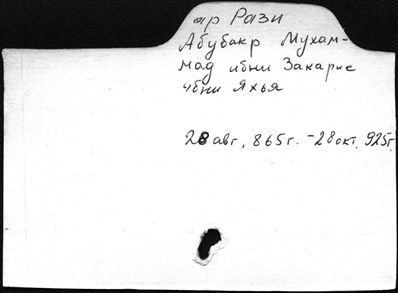 ар Рази
Абубакр Мухам-
мад ибни Закарие
ибни Яхья
28 авг, 865г. - 28 окт. 925г.